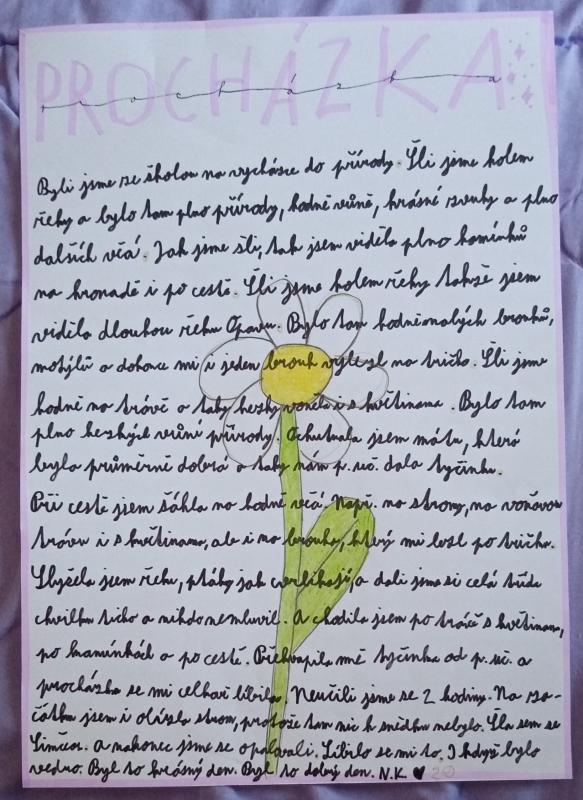 PROCHÁZKA
procházka
Byli jsme se školou na vycházce do přírody. Šli jsme kolem
řeky a bylo tam plno přírody, hodně vůně, krásné zvuky a plno
dalších věcí. Jak jsme šli, tak jsem viděla plno kamínků
na hromadě i po cestě. Šli jsme kolem řeky takže jsem
viděla dlouhou řeku Opavu. Bylo tam hodně malých broučků,
motýlů a dokonce mi i jeden brouk vylezl na tričko. Šli jsme
hodně na trávě a taky hezky voněla i s květinama. Bylo tam
plno hezkých vůní přírody. Ochutnala jsem mátu, která
byla průměrně dobrá a taky nám p. uč. dala tyčinku.
Při cestě jsem šáhla na hodně věcí. Např. na stromy, na voňavou
trávu i s květinama, ale i na brouka, který mi lezl po tričku.
Slyšela jsem řeku, ptáky jak cvrlikají, a dali jsme si celá třída
chvilku ticho a nikdo nemluvil. A chodila jsem po trávě s květinama,
po kamínkách a po cestě. Překvapila mě tyčinka od p. uč. a
procházka se mi celkově líbila. Neučili jsme se 2 hodiny. Na za-
čátku jsem i olízla strom, protože tam nic k snědku nebylo. Šla jsem se
Simčou. A nakonec jsme se opalovali. Líbilo se mi to. I když bylo
vedro. Byl to krásný den. Byl to dobrý den. N.K. ♥